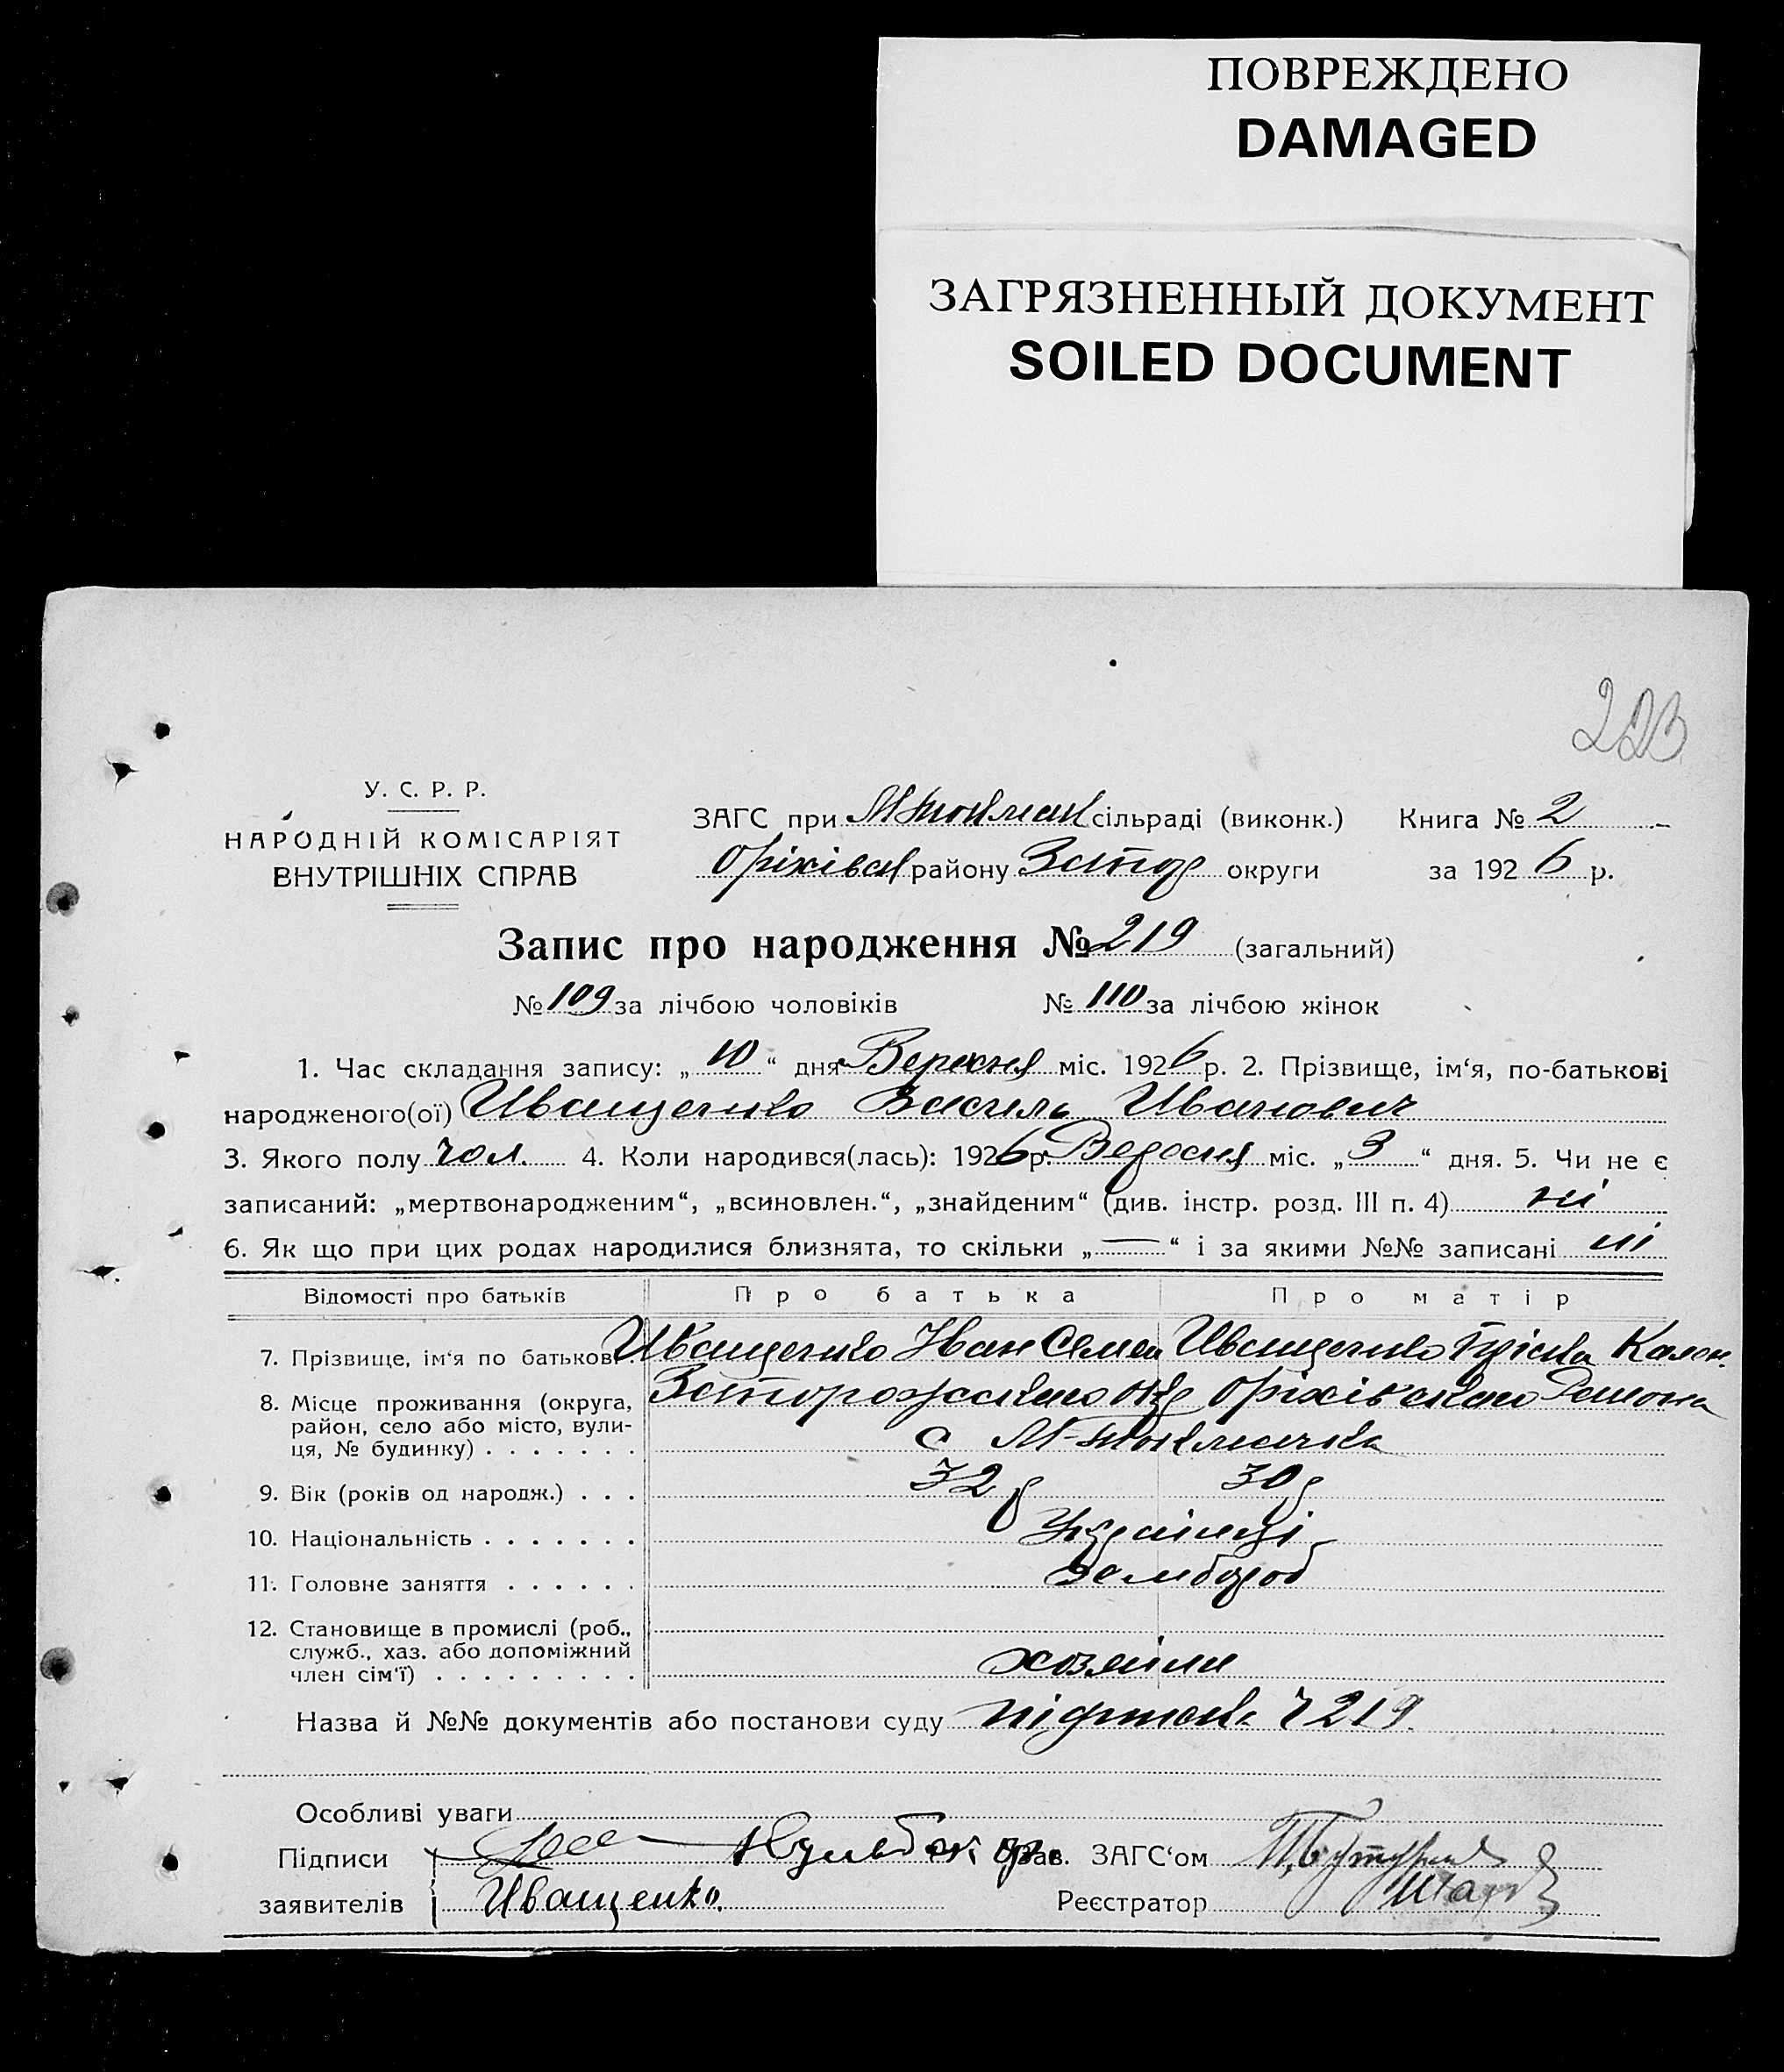 ПОВРЕЖДЕНО
DAMAGED
ЗАГРЯЗНЕННЫЙ ДОКУМЕНТ
SOILED DOCUMENT
223
У. С. Р. Р.
НАРОДНІЙ КОМІСАРІЯТ
ВНУТРІШНІХ СПРАВ
ЗАГС при М Токмац сільраді (виконк.) Книга № 2
Оріхівськ району Запор округи за 1926 р.
Запис про народження № 219 (загальний)
№ 109 за лічбою чоловіків № 110 за лічбою жінок
1. Час складання запису: „10“ дня Вересня міс. 1926 р. 2. Прізвище, ім‘я, по-батькові
народженого(ої) Иващенко Василь Иванович
3. Якого полу чол. 4. Коли народився(лась): 1926 р. Вересня міс. „3“ дня. 5. Чи не є
записаний: „мертвонародженим“, „всиновлен.“, „знайденим“ (див. інстр. розд. III п. 4) ні
6. Як що при цих родах народилися близнята, то скільки „—“ і за якими №№ записані ні
Відомості про батьків Про батька Про матір
7. Прізвище, ім‘я по батькові Иващенко Иван Семен Иващенко
8. Місце проживання (округа, район, село або місто, вулиця, № будинку) Запорожського окр Оріхівського Района
с М-Токмачка
9. Вік (років од народж.) 32 р 30 р
10. Національність Українці
11. Головне заняття хлібороб
12. Становище в промислі (роб., служб., хаз. або допоміжний член сім‘ї) хозяіни
Назва й №№ документів або постанови суду 219
Особливі уваги
Підписи Зав. ЗАГС‘ом
заявителів Иващенко. Реєстратор